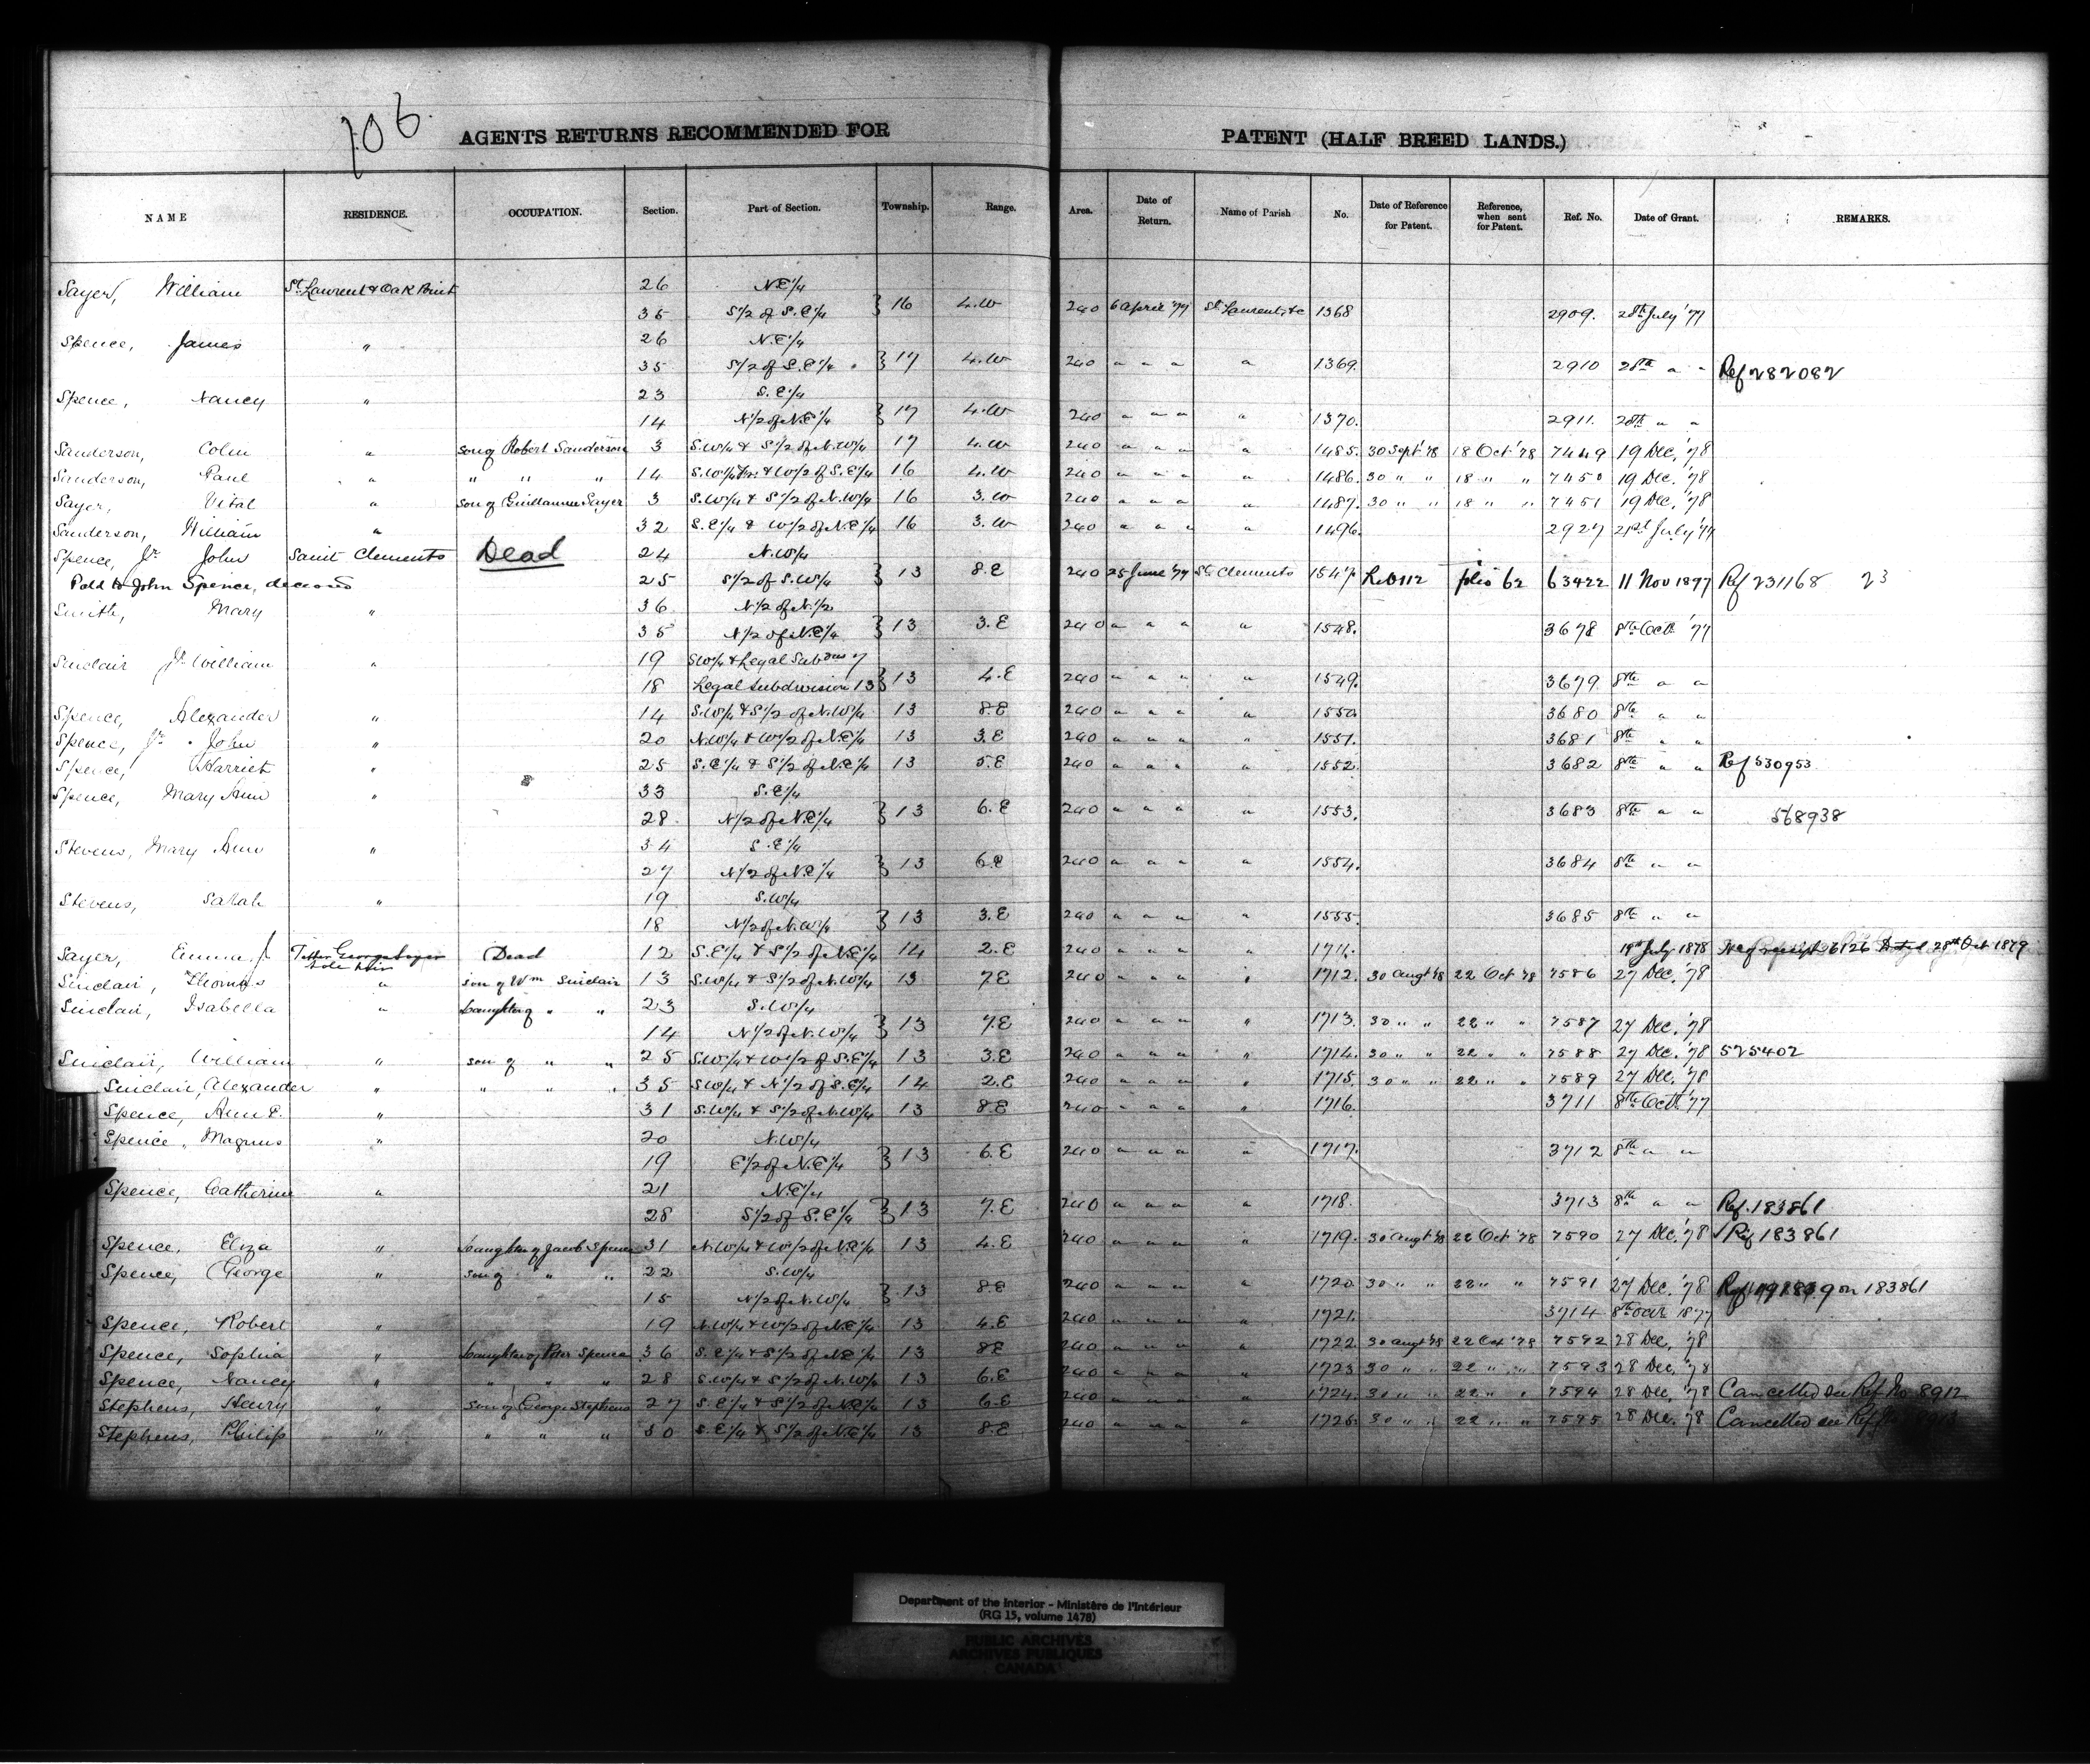 106.
AGENTS RETURNS RECOMMENDED FOR PATENT (HALF BREED LANDS.)
NAME RESIDENCE. OCCUPATION. Section. Part of Section. Township. Range. Area. Date of Return. Name of Parish No. Date of Reference for Patent. Reference, when sent for Patent. Ref. No. Date of Grant. REMARKS.
Sayer, William St. Laurent & Oak Point 26 N.E¼
35 S½ of S.E¼ } 16 4.W 240 6 April '77 St. Laurent, &c 1368 2909. 28th July '77
Spence, James " 26 N.E¼
35 S½ of S.E¼ } 17 4.W 240 " " " " 1369. 2910 28th " " Ref 282082
Spence, Nancy " 23 S.E¼
14 N½ of N.E¼ } 17 4.W 240 " " " " 1370. 2911. 28th " "
Sanderson, Colin " son of Robert Sanderson 3 S.W¼ & S½ of N.W¼ 17 4.W 240 " " " " 1485. 30 Sept '78 18 Oct '78 7449 19 Dec, '78
Sanderson, Paul " " " " 14 S.W¼ Fr. & W½ of S.E¼ 16 4.W 240 " " " " 1486. 30 " " 18 " " 7450 19 Dec. '78
Sayer, Vital " son of Guillaume Sayer 3 S.W¼ & S½ of N.W¼ 16 3.W 240 " " " " 1487. 30 " " 18 " " 7451 19 Dec. '78
Sanderson, William " 32 S.E¼ & W½ of N.E¼ 16 3.W 240 " " " " 1496. 2927 21st July '77
Spence, Jr. John Saint Clements Dead 24 N.W¼
Patd to John Spence, deceased 25 S½ of S.W¼ } 13 8.E 240 25 June '77 St. Clements 1547. Lib 112 folio 62 63422 11 Nov 1897 Ref 231168 23
Smith, Mary " 36 N½ of N.½
35 N½ of N.E¼ } 13 3.E 240 " " " " 1548. 3678 8th Oct. '77
Sinclair Jr. William " 19 SW¼ & Legal Subdns 7
18 Legal Subdivision 13 } 13 4.E 240 " " " " 1549. 3679. 8th " "
Spence, Alexander " 14 S.W¼ & S½ of N.W¼ 13 8.E 240 " " " " 1550. 3680 8th " "
Spence, Jr. John " 20 N.W¼ & W½ of N.E¼ 13 3.E 240 " " " " 1551. 3681 8th " "
Spence, Harriet " 25 S.E¼ & S½ of N.E¼ 13 5.E 240 " " " " 1552. 3682 8th " " Ref 530953
Spence, Mary Ann " 33 S.E¼
28 N½ of N.E¼ } 13 6.E 240 " " " " 1553. 3683 8th " " 568938
Stevens, Mary Ann " 34 S.E¼
27 N½ of N.E¼ } 13 6.E 240 " " " " 1554. 3684 8th " "
Stevens, Sarah " 19 S.W¼
18 N½ of N.W¼ } 13 3.E 240 " " " " 1555. 3685 8th " "
Sayer, Emma J. George Sayer sole heir Dead 12 S.E¼ & S½ of N.E¼ 14 2.E 240 " " " " 1711. 19th July 1878 26126 28th Oct 1879
Sinclair, Thomas " son of Wm Sinclair 13 S.W¼ & S½ of N.W¼ 13 7E 240 " " " " 1712. 30 Augt '78 22 Oct '78 7586 27 Dec, '78
Sinclair, Isabella " Daughter of " " 23 S.W¼
14 N½ of N.W¼ } 13 7.E 240 " " " " 1713. 30 " " 22 " " 7587 27 Dec. '78
Sinclair, William " son of " " 25 S.W¼ & W½ of S.E¼ 13 3.E 240 " " " " 1714. 30 " " 22 " " 7588 27 Dec. '78 525402
Sinclair, Alexander " " " " 35 S.W¼ & N½ of S.E¼ 14 2.E 240 " " " " 1715. 30 " " 22 " " 7589 27 Dec, '78
Spence, Ann E. " 31 S.W¼ & S½ of N.W¼ 13 8.E 240 " " " " 1716. 3711 8th Oct. '77
Spence, Magnus " 20 N.W¼
19 E½ of N.E¼ } 13 6.E 240 " " " " 1717. 3712 8th " "
Spence, Catherine " 21 N.E¼
28 S½ of S.E¼ } 13 7.E 240 " " " " 1718. 3713 8th " " Ref. 183861
Spence, Eliza " Daughter of Jacob Spence 31 N.W¼ & W½ of N.E¼ 13 4.E 240 " " " " 1719. 30 Augt '78 22 Oct '78 7590 27 Dec. '78 Ref 183861
Spence, George " son of " " 22 S.W¼
15 N½ of N.W¼ } 13 8.E 240 " " " " 1720. 30 " " 22 " " 7591 27 Dec. '78 on 183861
Spence, Robert " 19 N.W¼ & W½ of N.E¼ 13 4.E 240 " " " " 1721. 3714 8th Oct 1877
Spence, Sophia " Daughter of Peter Spence 36 S.E¼ & S½ of N.E¼ 13 8E 240 " " " " 1722. 30 Augt '78 22 Oct '78 7592 28 Dec, '78
Spence, Nancy " " " " 28 S.W¼ & S½ of N.W¼ 13 6.E 240 " " " " 1723 30 " " 22 " " 7593 28 Dec, '78
Stephens, Henry " son of George Stephens 27 S.E¼ & S½ of N.E¼ 13 6.E 240 " " " " 1724. 30 " " 22 " " 7594 28 Dec, '78 Cancelled see Ref. No 8912
Stephens, Philip " " " " 30 S.E¼ & S½ of N.E¼ 13 8.E 240 " " " " 1725. 30 " " 22 " " 7595 28 Dec, '78 Cancelled see Ref. No 8913
Department of the Interior - Ministère de l'Intérieur
(RG 15, volume 1478)
PUBLIC ARCHIVES
ARCHIVES PUBLIQUES
CANADA